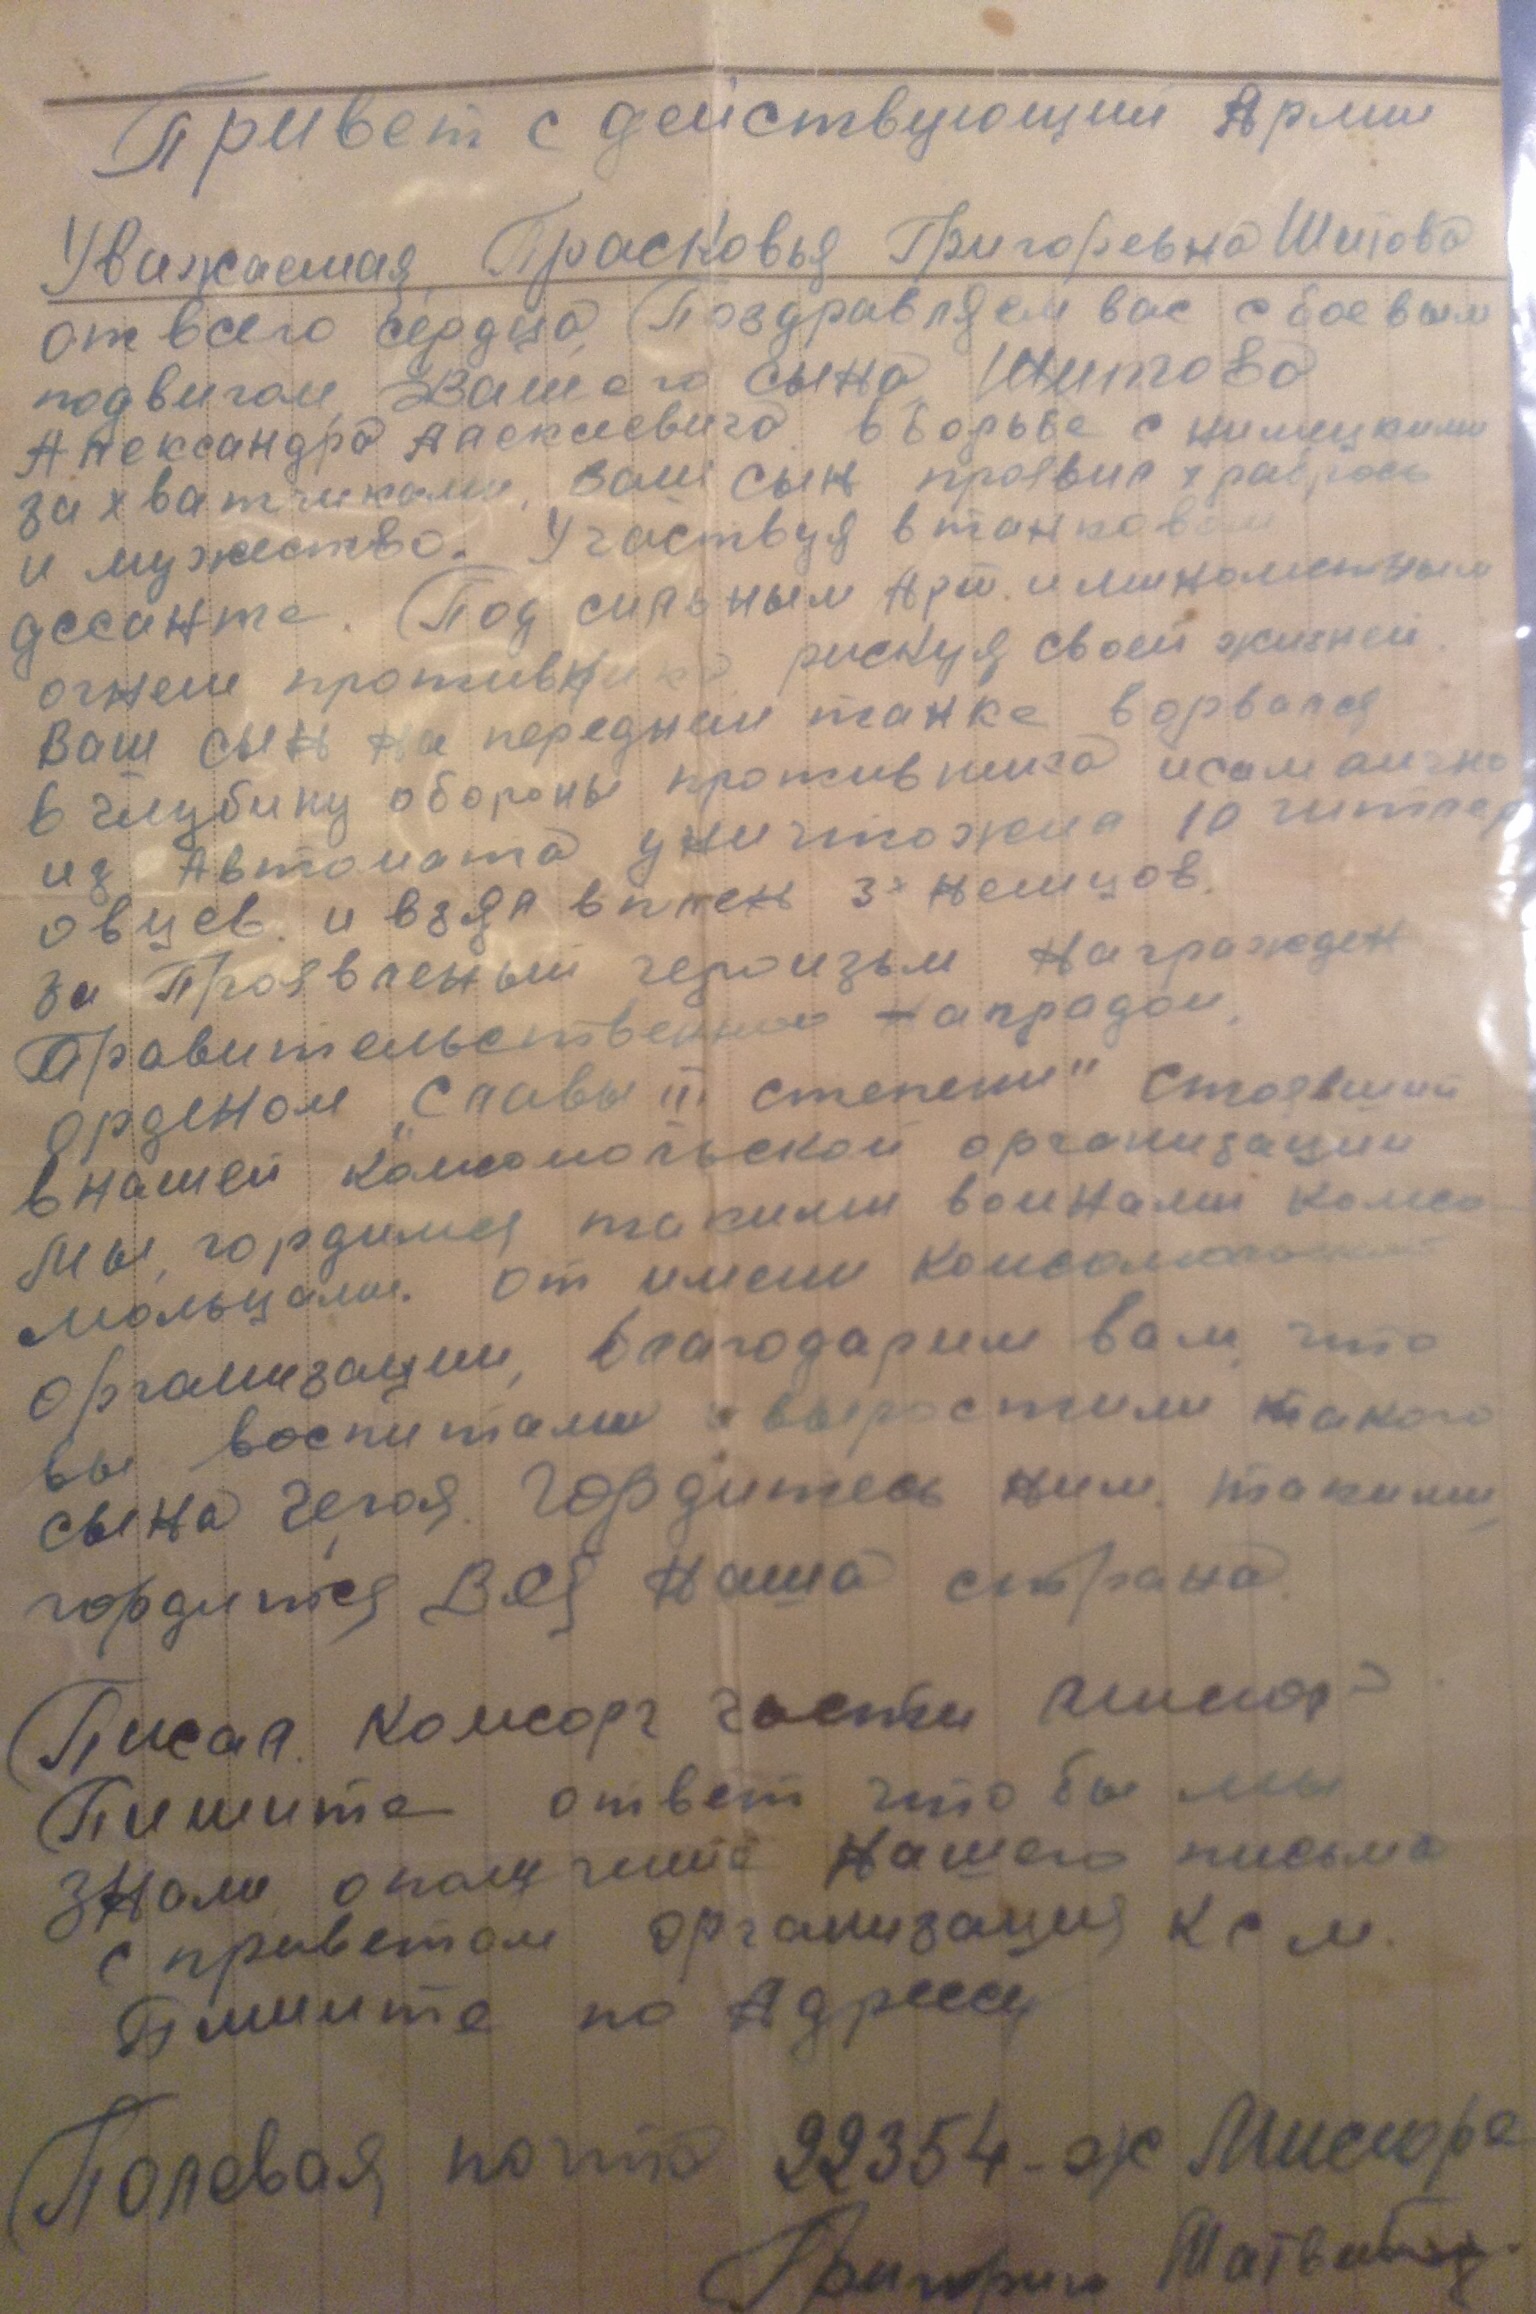 Привет с действующий Армии
Уважаемая Прасковья Григорьевна Шитова
от всего сердца Поздравляем вас с боевым
подвигом Вашего сына Шитова
Александра Алексеевича в борьбе с нимецкими
захватчиками, ваш сын проявил храбрость
и мужество. Участвуя в танковом
десанте. Под сильным Арт. и минометным
огнем противника рискуя своей жизней.
Ваш сын на переднем танке ворвался
в глубину обороны противника и сам лично
из Автомата уничтожил 10 гитлер
овцев. и взял в плен 3х немцов.
за Проявленый героизьм награжден
Правительственной наградой.
орденом „Славы III степени" стоявший
в нашей комсомольской организации
Мы, гордимся такими воинами комсо-
мольцами. от имени комсомольской
организации, благодарим вам, что
вы воспитали и выростили такого
сына героя. Гордитесь ним. такими
гордится вся наша страна.
Писал. комсорг части
Пишите ответ что бы мы
знали о получении нашего письма
с приветом организация К С М.
Пишите по Адресу
Полевая почта 22354-ж
Григорию